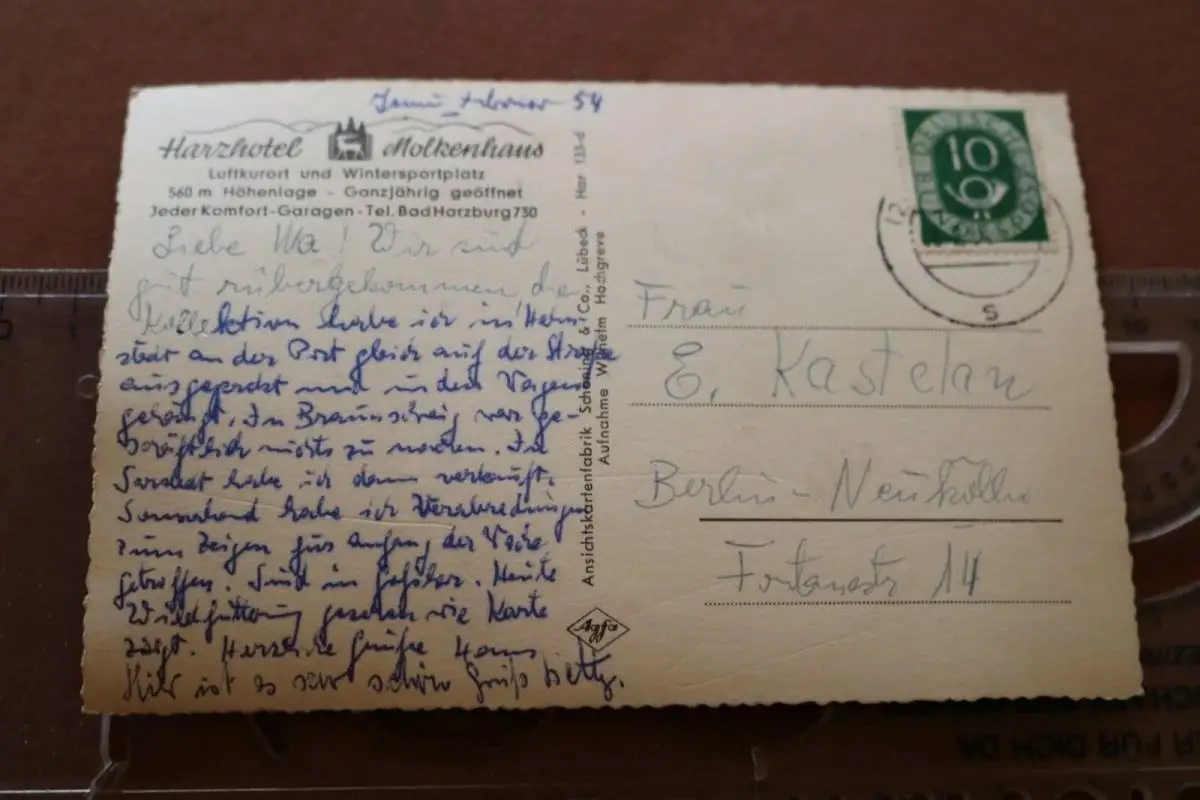 54
Harzhotel Molkenhaus
Luftkurort und Wintersportplatz
560 m Höhenlage - Ganzjährig geöffnet
Jeder Komfort-Garagen - Tel. Bad Harzburg 730
Liebe Ma! Wir sind
gut rübergekommen die
Kollektion habe ich in Helm-
stedt an der Post gleich auf der Straße
ausgepackt und in den Wagen
gehängt. In Braunschweig war ge-
schäftlich nichts zu machen. In
habe ich dann verkauft.
Sonnabend habe ich Verabredungen
zum Zeigen für Anfang der Woche
getroffen. Sind in Goslar. Heute
Wildfütterung gesehen wie Karte
zeigt. Herzliche Grüße Hans
Hier ist es sehr schön Gruß Betty.
Ansichtskartenfabrik Schöning & Co., Lübeck - Har 133-d
Aufnahme Wilhelm Hochgreve
Agfa
10
DEUTSCHE BUNDESPOST
12
s
Frau
E. Kastelan
Berlin-Neukölln
Fontanestr 14
FÜR DICH DA